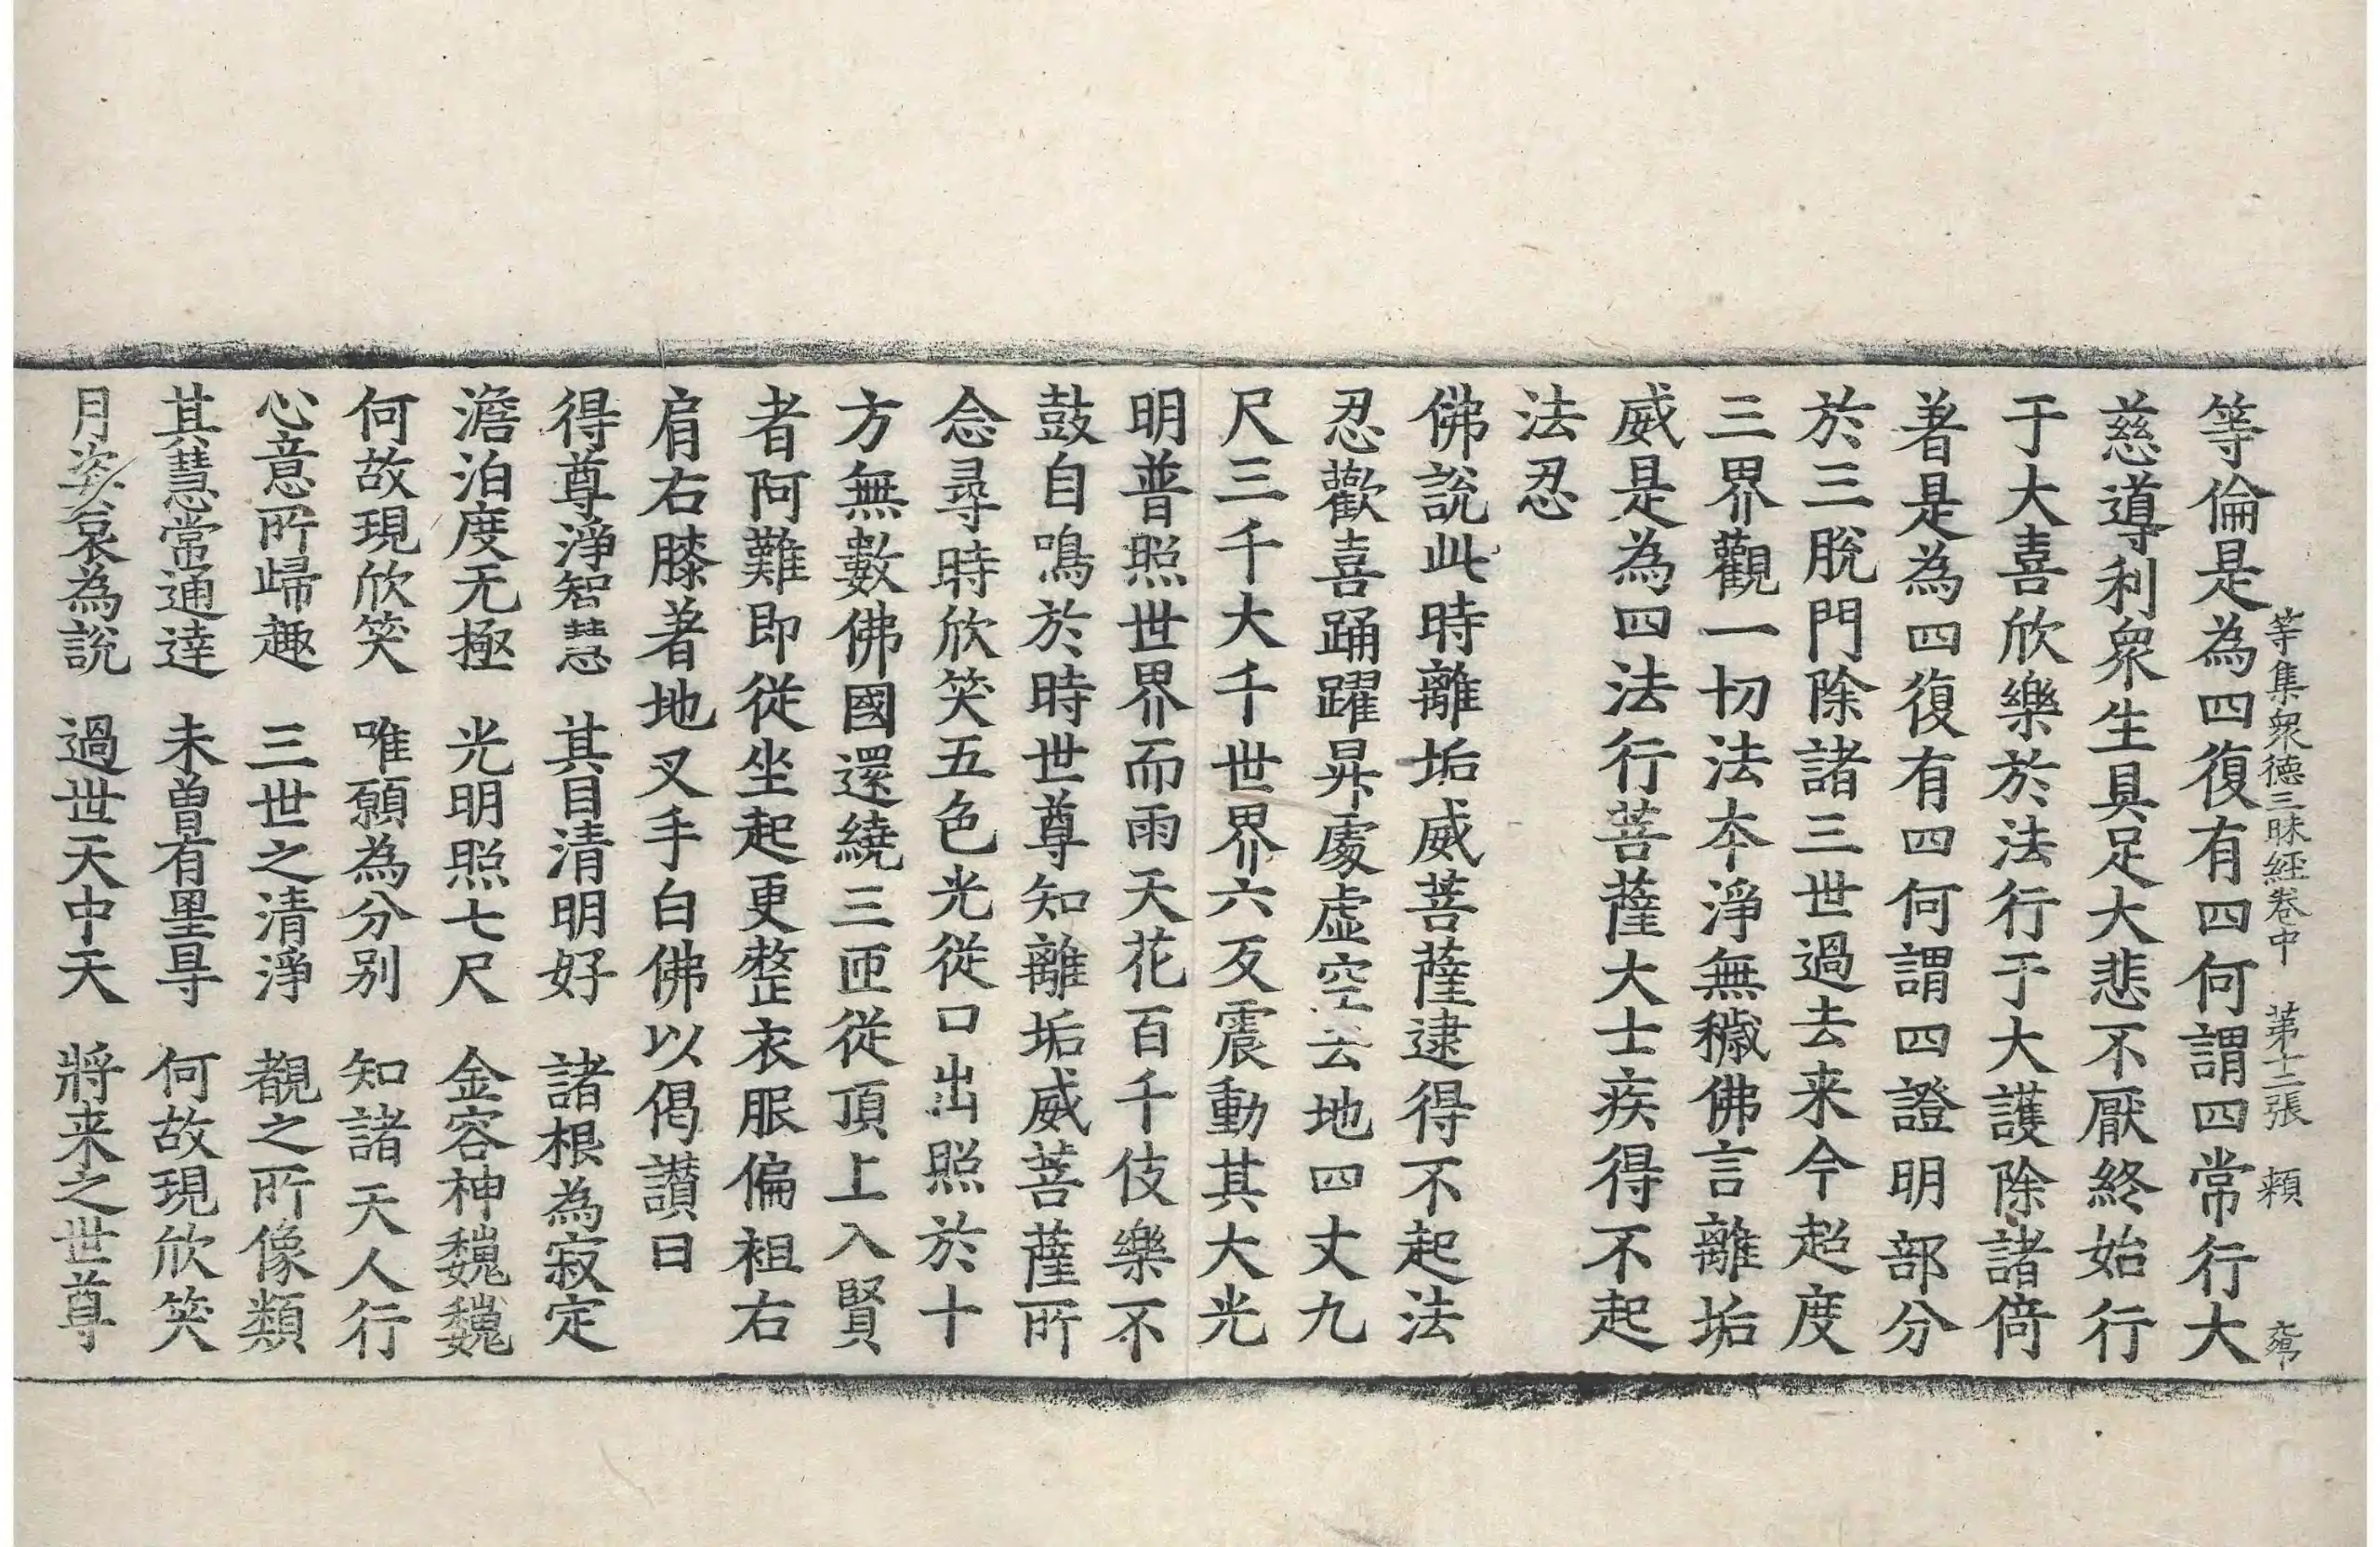 等集衆德三昧經卷中　第十二張　頼
等倫是為四復有四何謂四常行大
慈導利衆生具足大悲不厭終始行
于大喜欣樂於法行于大護除諸倚
著是為四復有四何謂四證明部分
於三脫門除諸三世過去来今超度
三界觀一切法本淨無穢佛言離垢
威是為四法行菩薩大士疾得不起
法忍
佛說此時離垢威菩薩逮得不起法
忍歡喜踊躍昇處虛空去地四丈九
尺三千大千世界六反震動其大光
明普照世界而雨天花百千伎樂不
鼓自鳴於時世尊知離垢威菩薩所
念尋時欣笑五色光從口出照於十
方無數佛國還繞三匝從頂上入賢
者阿難即從坐起更整衣服偏袒右
肩右膝著地叉手白佛以偈讃曰
得尊淨智慧　其目清明好　諸根為寂定
澹泊度无極　光明照七尺　金容神巍巍
何故現欣笑　唯願為分别　知諸天人行
心意所歸趣　三世之清淨　覩之所像類
其慧常通達　未曾有罣㝵　何故現欣笑
月姿哀為說　過世天中天　將来之世尊